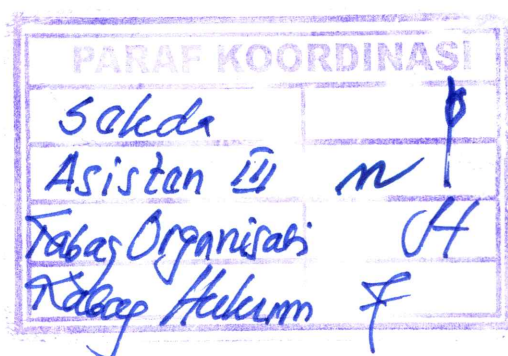 PARAF KOORDINASI
Sekda
Asisten III
Kabag Organisasi
Kabag Hukum